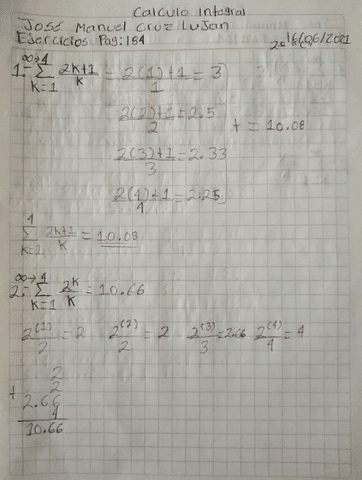 Calculo Integral
José Manuel Cruz Lujan
Ejercicios Pag: 184
16/06/2021
∞→4
1=∑ 2k+1/k = 2(1)+1/1 = 3
k=1
2(2)+1/2 = 2.5
+ = 10.08
2(3)+1/3 = 2.33
2(4)+1/4 = 2.25
4
∑ 2k+1/k = 10.08
k=1
∞→4
2=∑ 2^k/k = 10.66
k=1
2^(1)/2 = 2 2^(2)/2 = 2 2^(3)/3 = 2.66 2^(4)/4 = 4
2
2
+ 2.66
4
10.66